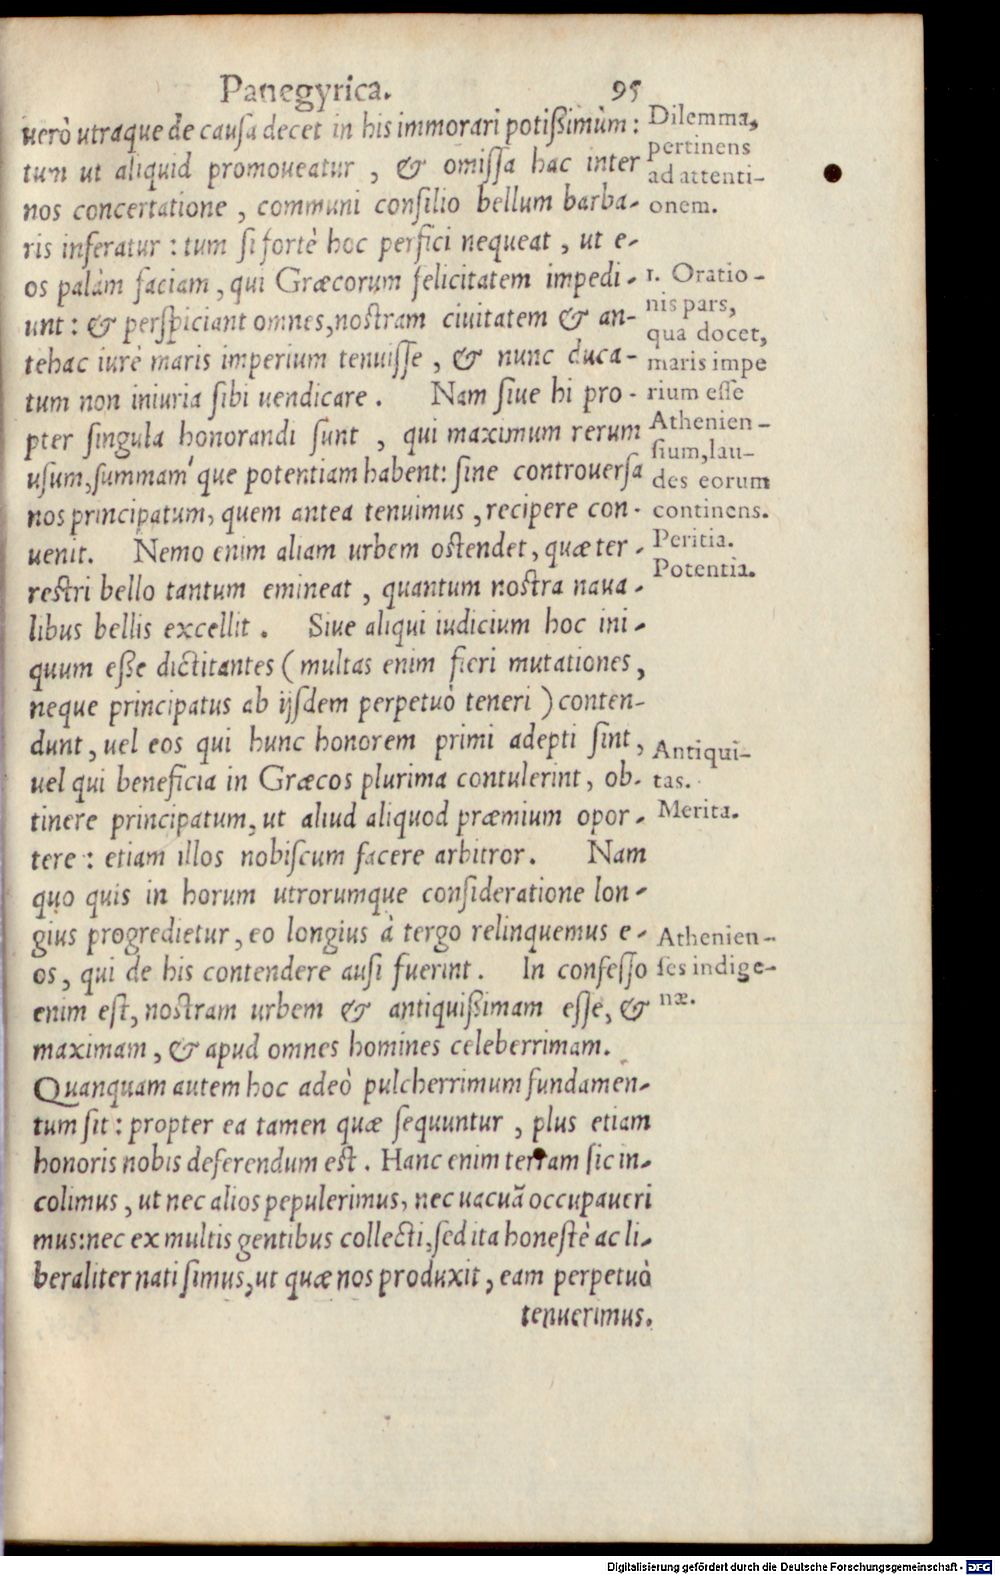 Panegyrica. 95
uerò utraque de causa decet in his immorari potißimùm:
tum ut aliquid promoueatur, & omissa hac inter
nos concertatione, communi consilio bellum barba-
ris inferatur: tum si fortè hoc perfici nequeat, ut e-
os palàm faciam, qui Græcorum felicitatem impedi-
unt: & perspiciant omnes, nostram ciuitatem & an-
tehac iurè maris imperium tenuisse, & nunc duca-
tum non iniuria sibi uendicare. Nam siue hi pro-
pter singula honorandi sunt, qui maximum rerum
usum, summam'que potentiam habent: sine controuersa
nos principatum, quem antea tenuimus, recipere con-
uenit. Nemo enim aliam urbem ostendet, quæ ter-
restri bello tantum emineat, quantum nostra naua-
libus bellis excellit. Siue aliqui iudicium hoc ini-
quum eße dictitantes (multas enim fieri mutationes,
neque principatus ab ijsdem perpetuò teneri) conten-
dunt, uel eos qui hunc honorem primi adepti sint,
uel qui beneficia in Græcos plurima contulerint, ob-
tinere principatum, ut aliud aliquod præmium opor-
tere: etiam illos nobiscum facere arbitror. Nam
quo quis in horum utrorumque consideratione lon-
gius progredietur, eo longius à tergo relinquemus e-
os, qui de his contendere ausi fuerint. In confesso
enim est, nostram urbem & antiquißimam esse, &
maximam, & apud omnes homines celeberrimam.
Quanquam autem hoc adeò pulcherrimum fundamen-
tum sit: propter ea tamen quæ sequuntur, plus etiam
honoris nobis deferendum est. Hanc enim terram sic in-
colimus, ut nec alios pepulerimus, nec uacuã occupaueri
mus: nec ex multis gentibus collecti, sed ita honestè ac li-
beraliter nati simus, ut quæ nos produxit, eam perpetuò
tenuerimus.
Dilemma,
pertinens
ad attenti-
onem.
1. Oratio-
nis pars,
qua docet,
maris impe
rium esse
Athenien-
sium, lau-
des eorum
continens.
Peritia.
Potentia.
Antiqui-
tas.
Merita.
Athenien-
ses indige-
næ.
Digitalisierung gefördert durch die Deutsche Forschungsgemeinschaft - DFG